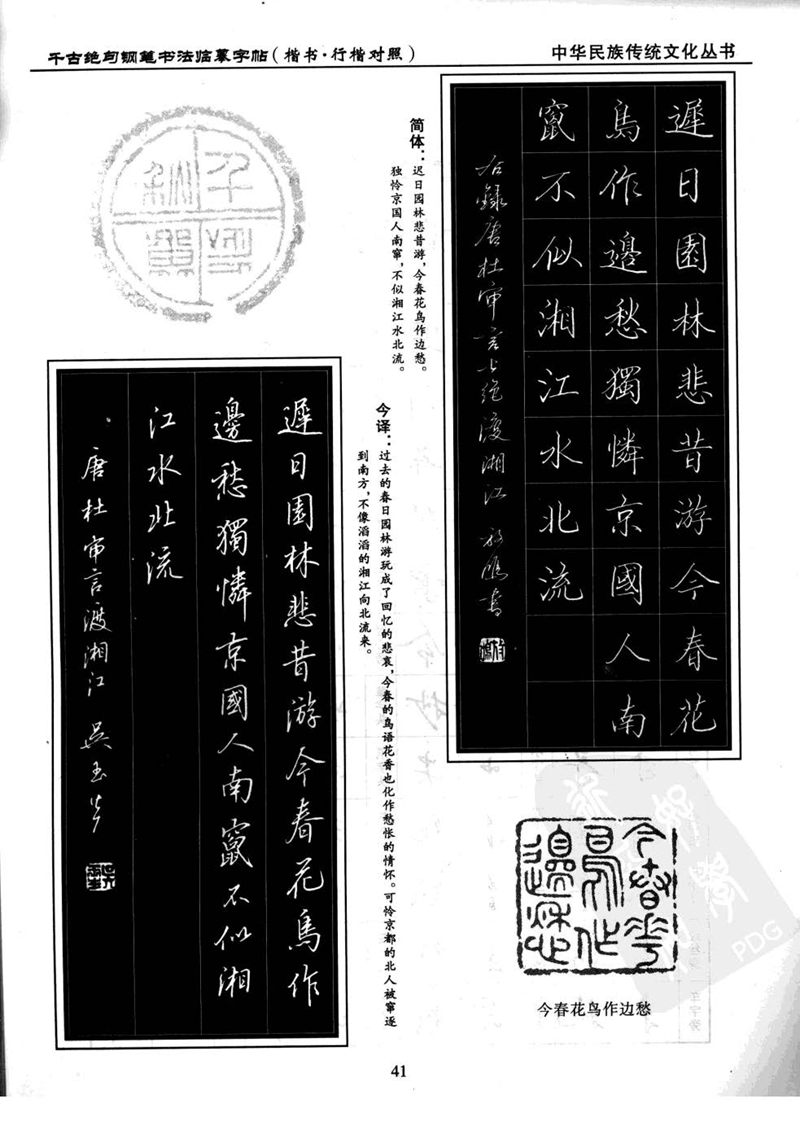 千古绝句钢笔书法临摹字帖（楷书·行楷对照）
中华民族传统文化丛书
遲日園林悲昔游今春花
鳥作邊愁獨憐京國人南
竄不似湘江水北流
右録唐杜审言七绝渡湘江
简体：迟日园林悲昔游，今春花鸟作边愁。
独怜京国人南窜，不似湘江水北流。
今译：过去的春日园林游玩成了回忆的悲哀，今春的鸟语花香也化作愁怅的情怀。可怜京都的北人被窜逐
到南方，不像滔滔的湘江向北流来。
遲日園林悲昔游今春花鳥作
邊愁獨憐京國人南竄不似湘
江水北流
唐杜审言渡湘江 吴玉生
今春花鸟作边愁
PDG
41